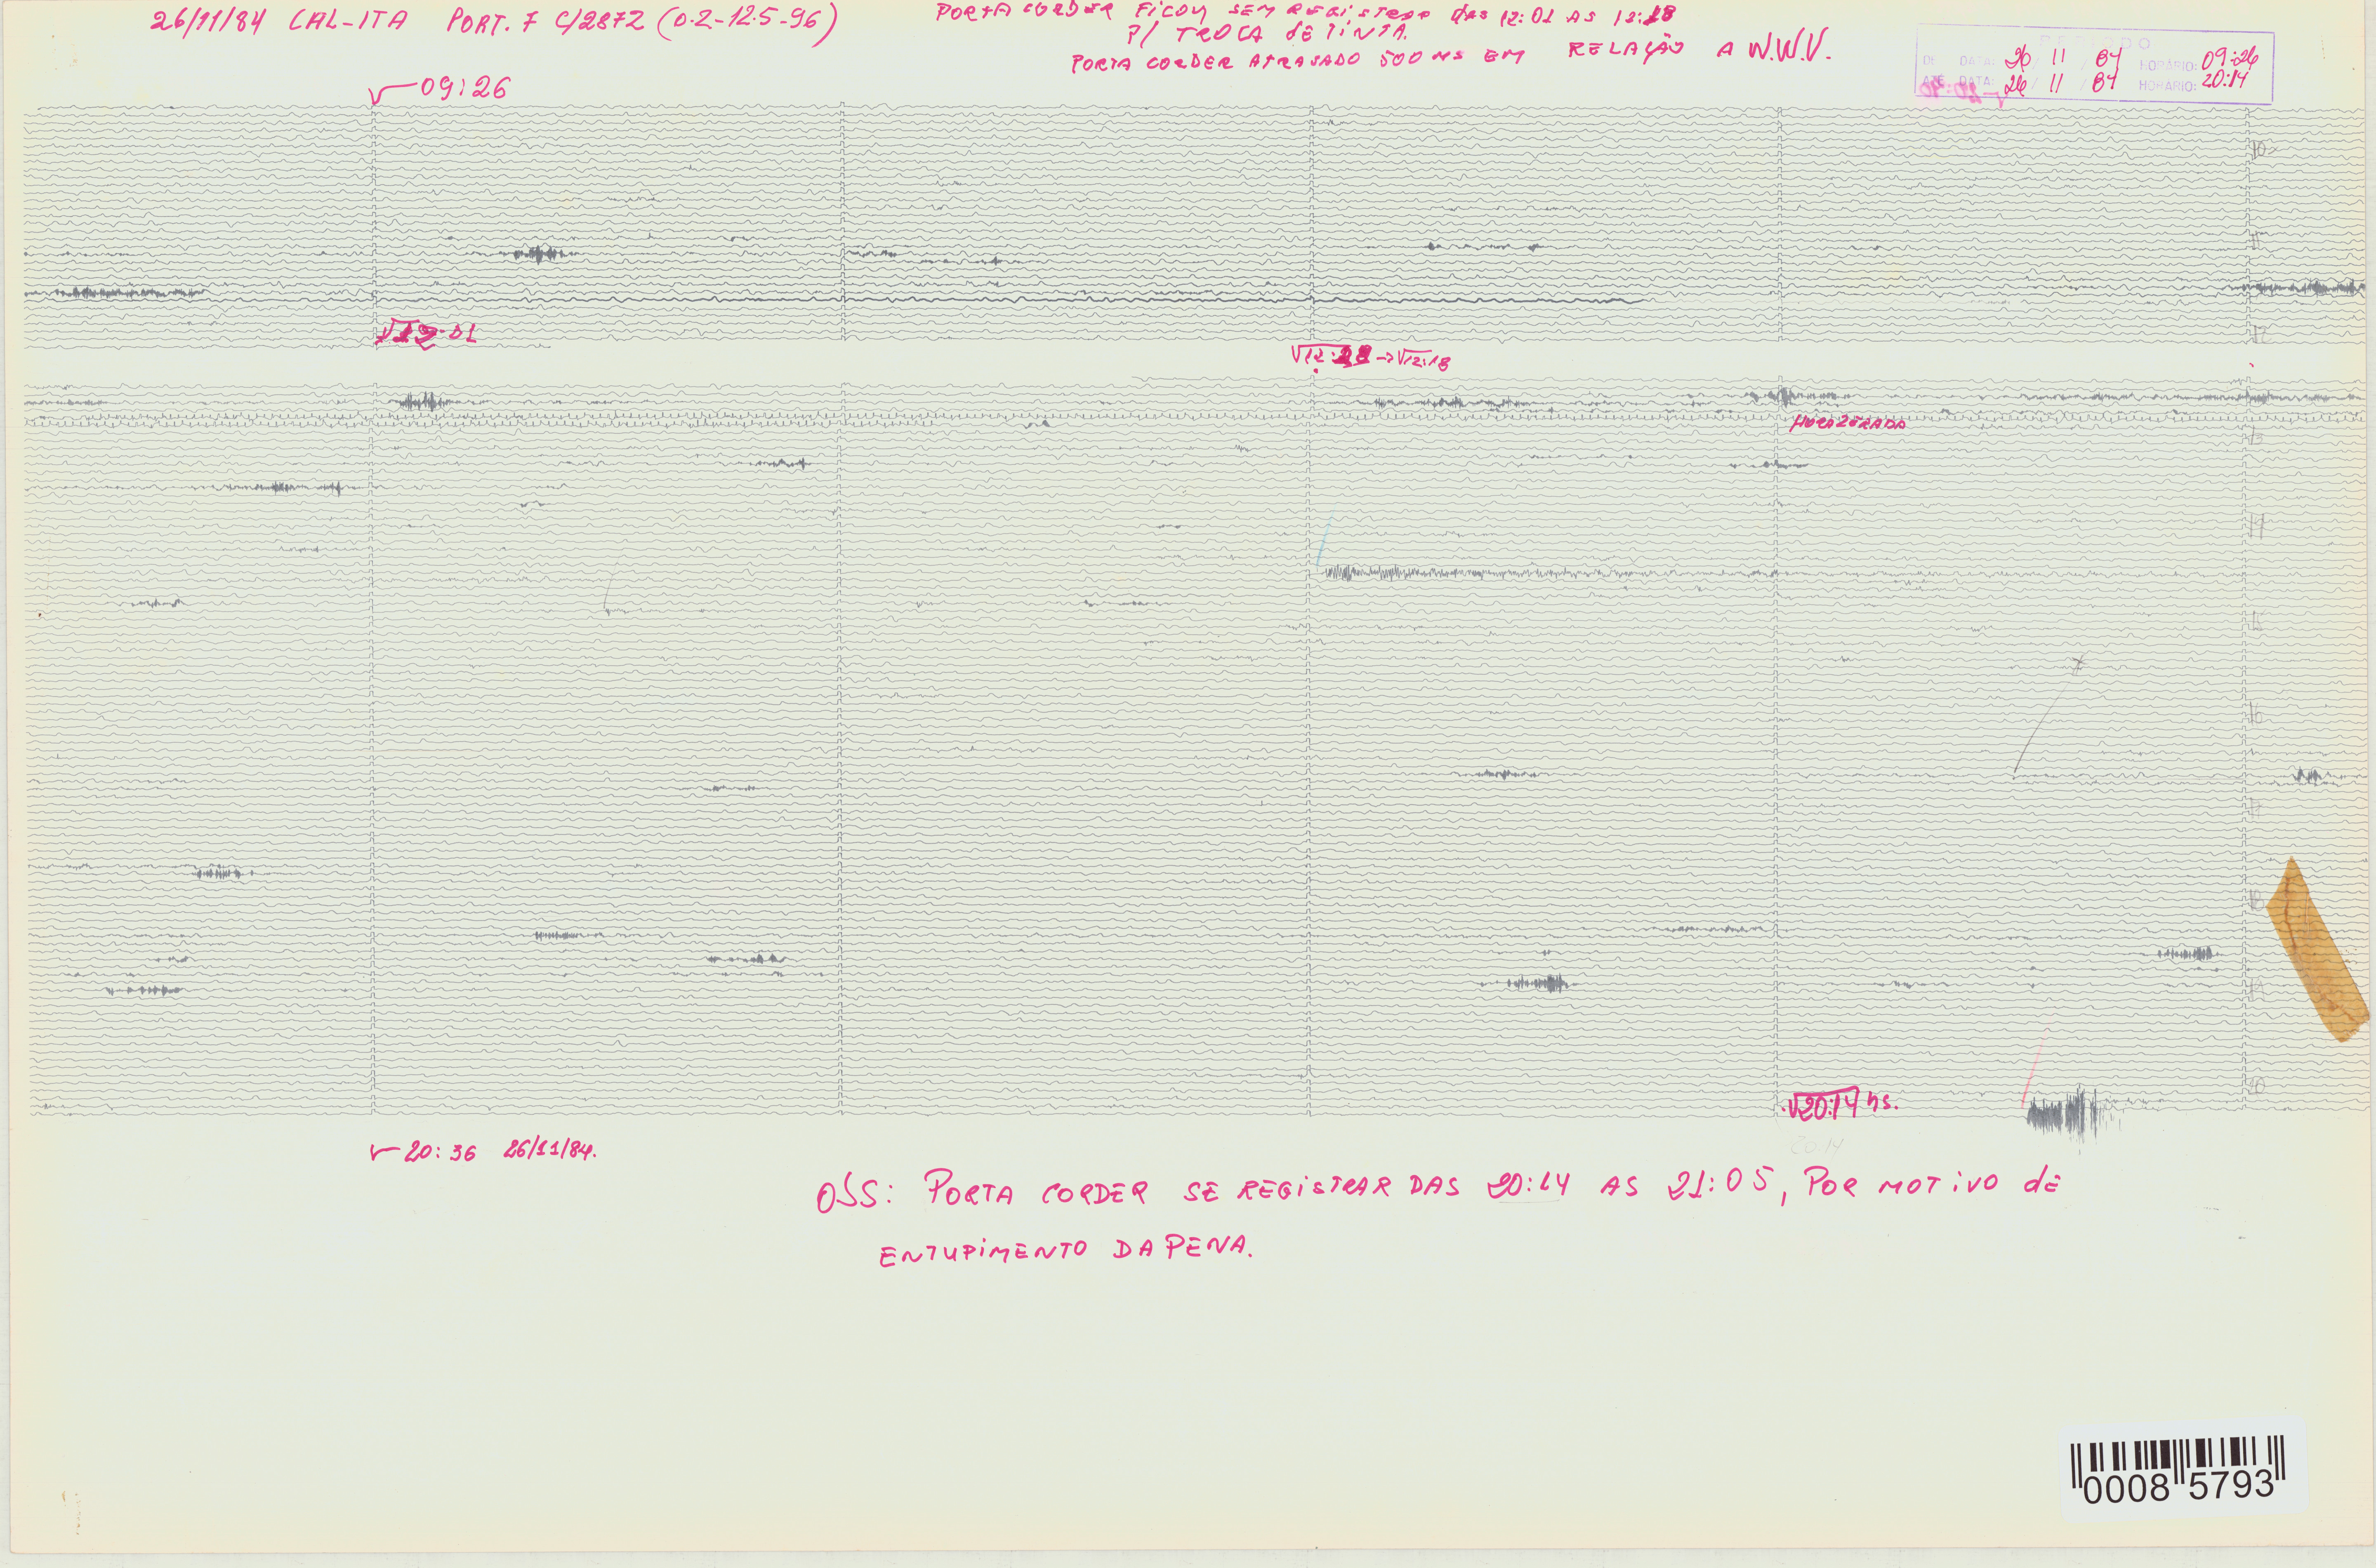 26/11/84 CAL-ITA PORT. 7 C/2872 (0.2-12.5-96)
PORTA CORDER FICOU SEM REGISTRAR DAS 12:01 AS 12:18
P/ TROCA DE TINTA.
PORTA CORDER ATRASADO 500 MS EM RELAÇÃO A W.W.V.
DE DATA: 26 / 11 / 84 HORÁRIO: 09:26
ATÉ DATA: 26 / 11 / 84 HORÁRIO: 20:14
09:26
10
11
12:01
12
12:18 → 12:18
HORA ZERADA
13
14
15
16
17
18
19
20
20:14 hs.
20:14
20:36 26/11/84.
OBS: PORTA CORDER SE REGISTRAR DAS 20:14 AS 21:05, POR MOTIVO DE
ENTUPIMENTO DA PENA.
0008 5793